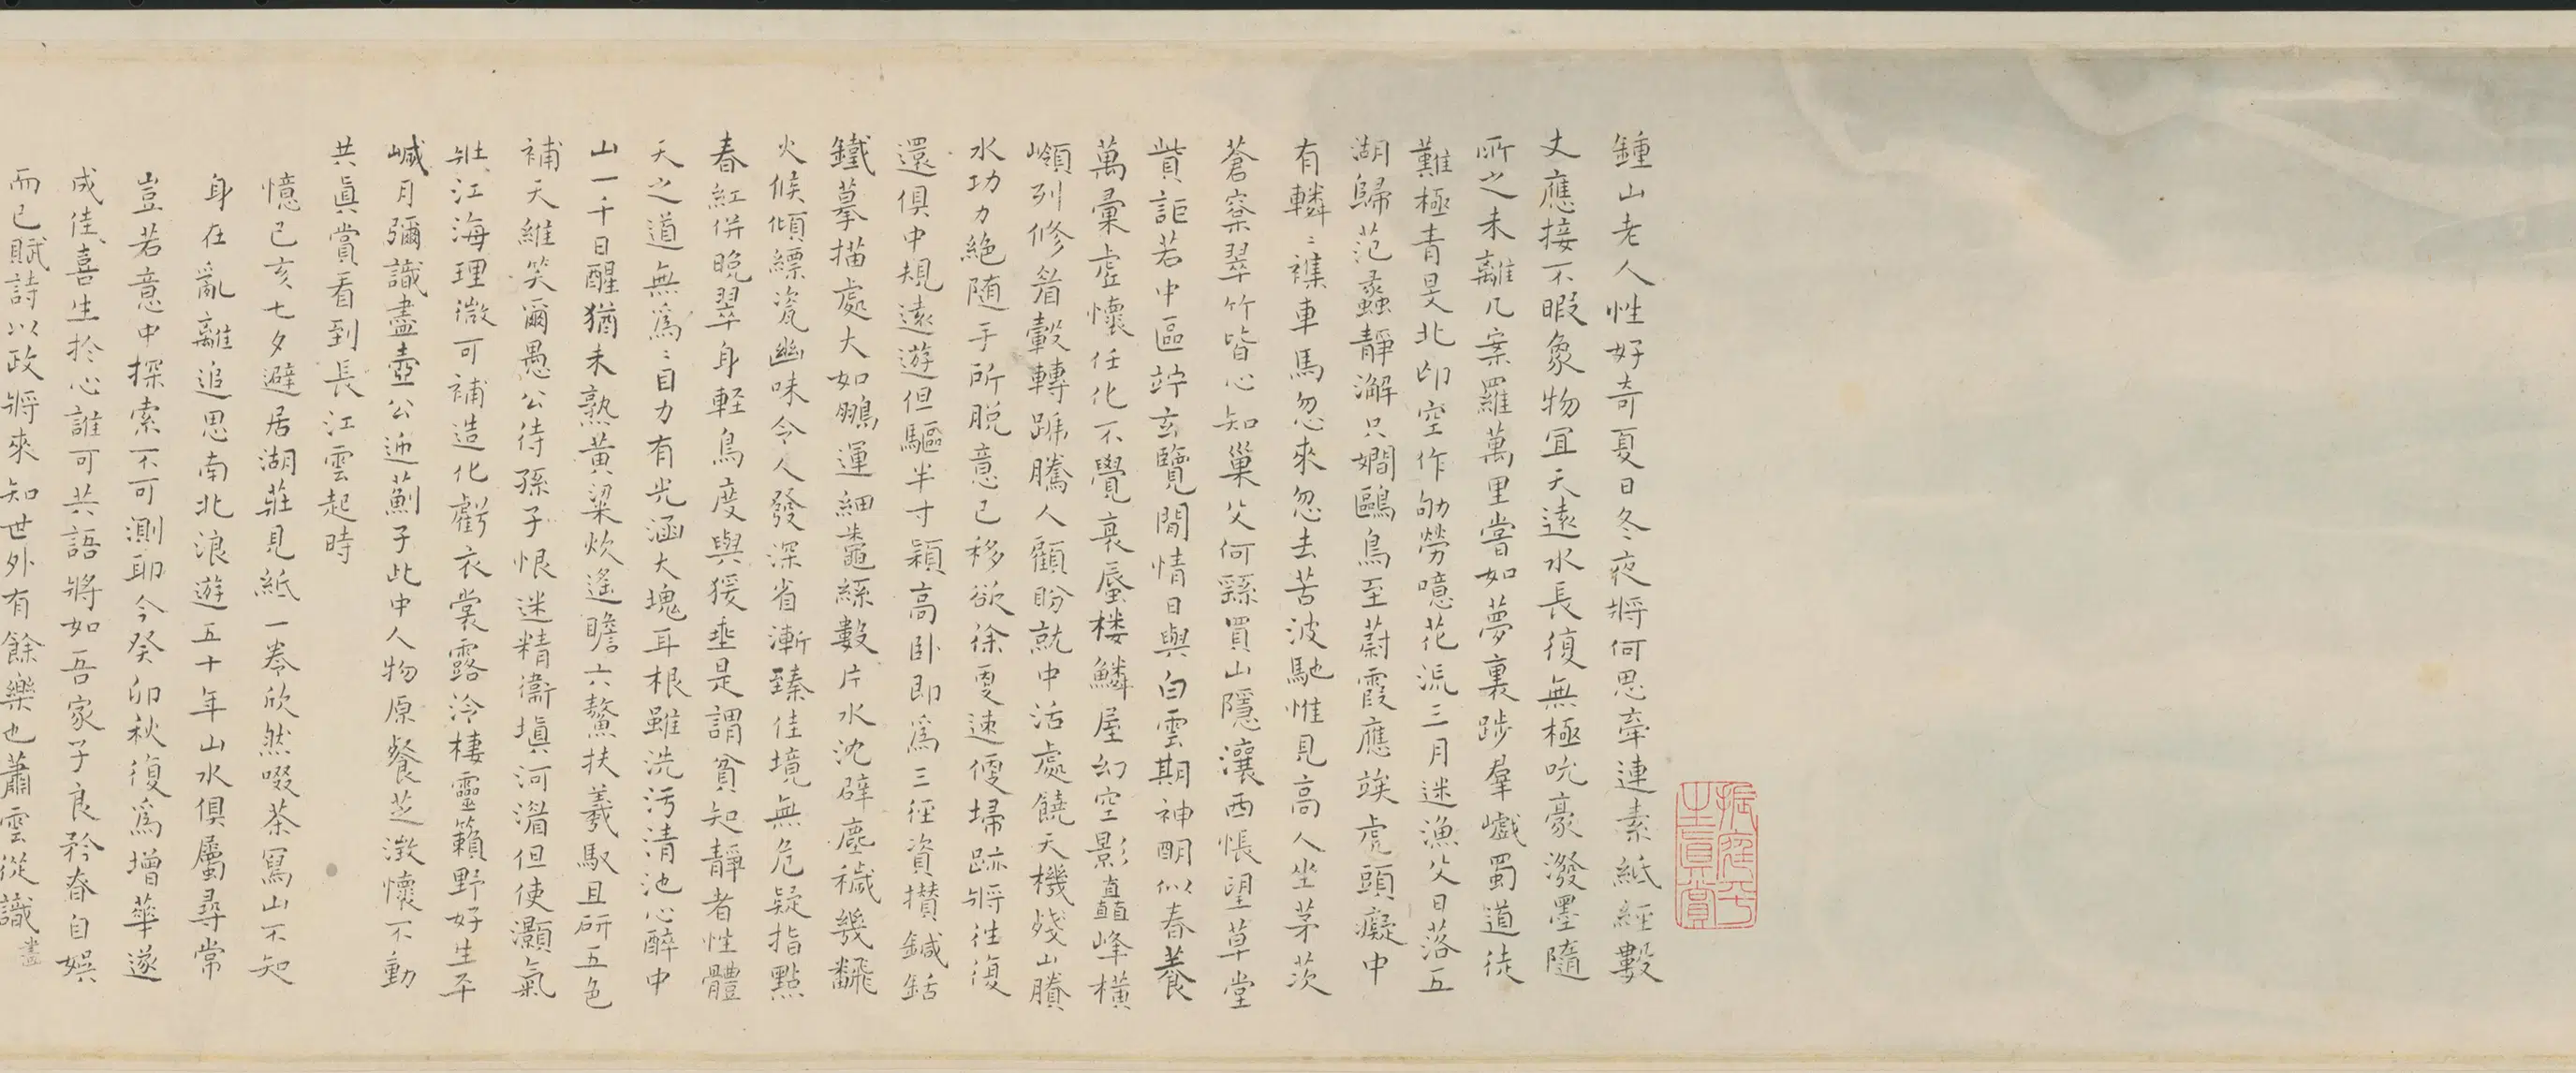 鍾山老人性好奇夏日冬夜將何思牽連素紙經數
丈應接不暇象物冝天遠水長復無極吮豪潑墨隨
所之未離几案羅萬里嘗如夢裏跻羣巇蜀道徒
難極青旻北邙空作劬勞噫花流三月迷漁父日落五
湖歸范蠡靜澥只嫺鷗鳥至蔚霞應誒虎頭癡中
有轔〻襍車馬忽來忽去苦波馳惟見高人坐茅茨
蒼寀翠竹皆心知巢父何繇買山隱瀼西悵望草堂
貲詎若中區竚玄覽閒情日與白雲期神眀似春養
萬彙虛懷任化不覺衰蜃楼鱗屋幻空影矗峰橫
嶺列修眉轂轉蹏騰人顧盼就中活處饒天機殘山賸
水功力絶随手所脫意已移欲徐更速僾埽跡將徃復
還俱中規遠遊但驅半寸穎高卧即爲三徑資攢鍼銛
鐵摹描處大如鵬運細蠶絲數片水沈辟塵穢幾飜
火候傾縹瓷幽味令人發深省漸臻佳境無危疑指點
春紅併晩翠身軽鳥度與猨垂是謂貧知靜者性體
天之道無爲〻自力有光涵大塊耳根雖洗汚清池心醉中
山一千日醒猶未熟黄粱炊遙瞻六鰲扶羲馭且研五色
補天維笑爾愚公待孫子恨迷精衞塡河湄但使灝氣
壯江海理微可補造化虧衣裳露泠棲靈籟野好生平
嵅月彌識盡壺公迊薊子此中人物原餐芝澂懷不動
共眞賞看到長江雲起時
憶己亥七夕避居湖莊見紙一卷欣然啜茶寫山不知
身在亂離追思南北浪遊五十年山水俱屬尋常
豈若意中探索不可測耶今癸卯秋復爲增華遂
成佳喜生於心誰可共語將如吾家子良矜眘自娛
而已賦詩以政將來知世外有餘樂也蕭雲從識畫
振庭平
生眞賞